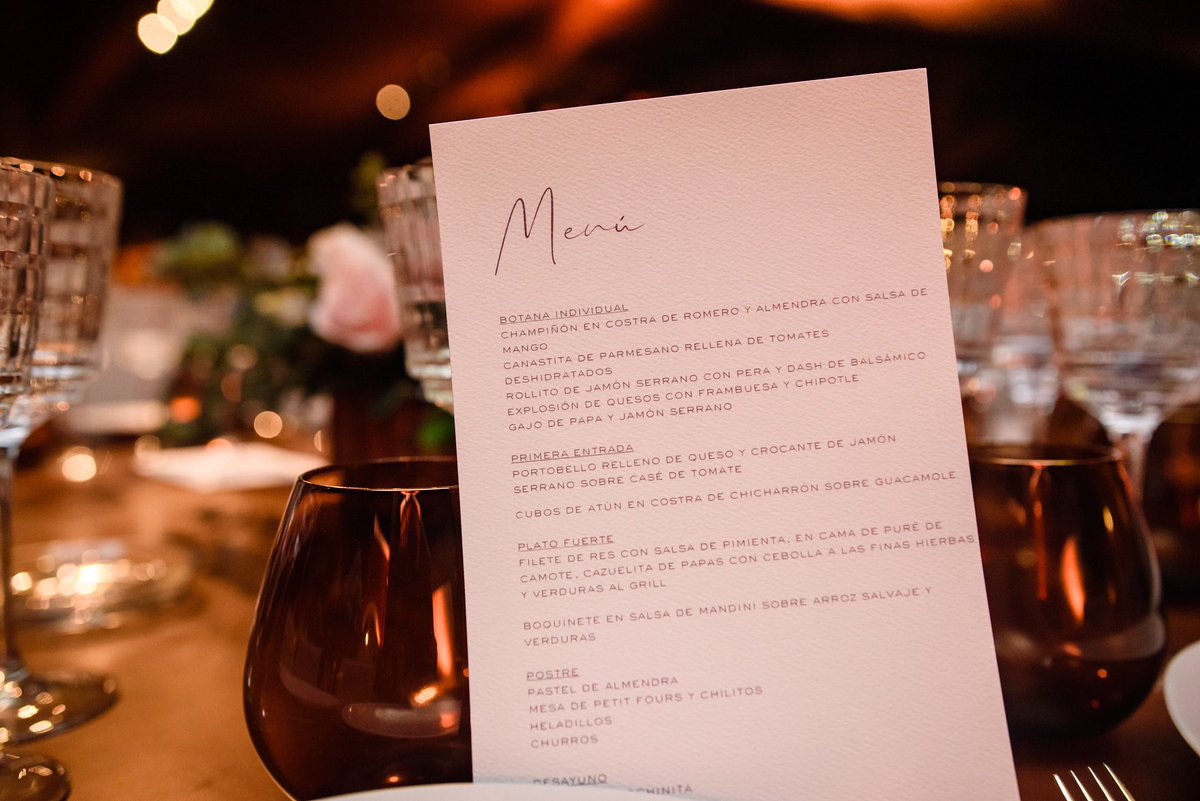 Menú
BOTANA INDIVIDUAL
CHAMPIÑÓN EN COSTRA DE ROMERO Y ALMENDRA CON SALSA DE
MANGO
CANASTITA DE PARMESANO RELLENA DE TOMATES
DESHIDRATADOS
ROLLITO DE JAMÓN SERRANO CON PERA Y DASH DE BALSÁMICO
EXPLOSIÓN DE QUESOS CON FRAMBUESA Y CHIPOTLE
GAJO DE PAPA Y JAMÓN SERRANO
PRIMERA ENTRADA
PORTOBELLO RELLENO DE QUESO Y CROCANTE DE JAMÓN
SERRANO SOBRE CASÉ DE TOMATE
CUBOS DE ATÚN EN COSTRA DE CHICHARRÓN SOBRE GUACAMOLE
PLATO FUERTE
FILETE DE RES CON SALSA DE PIMIENTA, EN CAMA DE PURÉ DE
CAMOTE, CAZUELITA DE PAPAS CON CEBOLLA A LAS FINAS HIERBAS
Y VERDURAS AL GRILL
BOQUINETE EN SALSA DE MANDINI SOBRE ARROZ SALVAJE Y
VERDURAS
POSTRE
PASTEL DE ALMENDRA
MESA DE PETIT FOURS Y CHILITOS
HELADILLOS
CHURROS
DESAYUNO